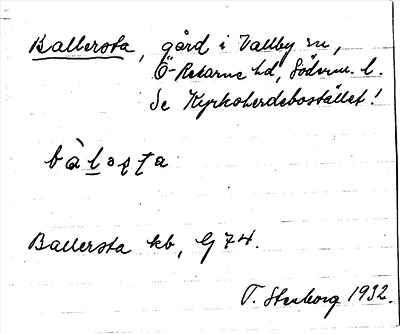 Ballersta, gård i Vallby sn,
Ö-Rekarne hd, Söderm. l.
Se Kyrkoherdebostället!
bàlэṣṭa
Ballersta kb, G 74.
T. Stenborg 1932.